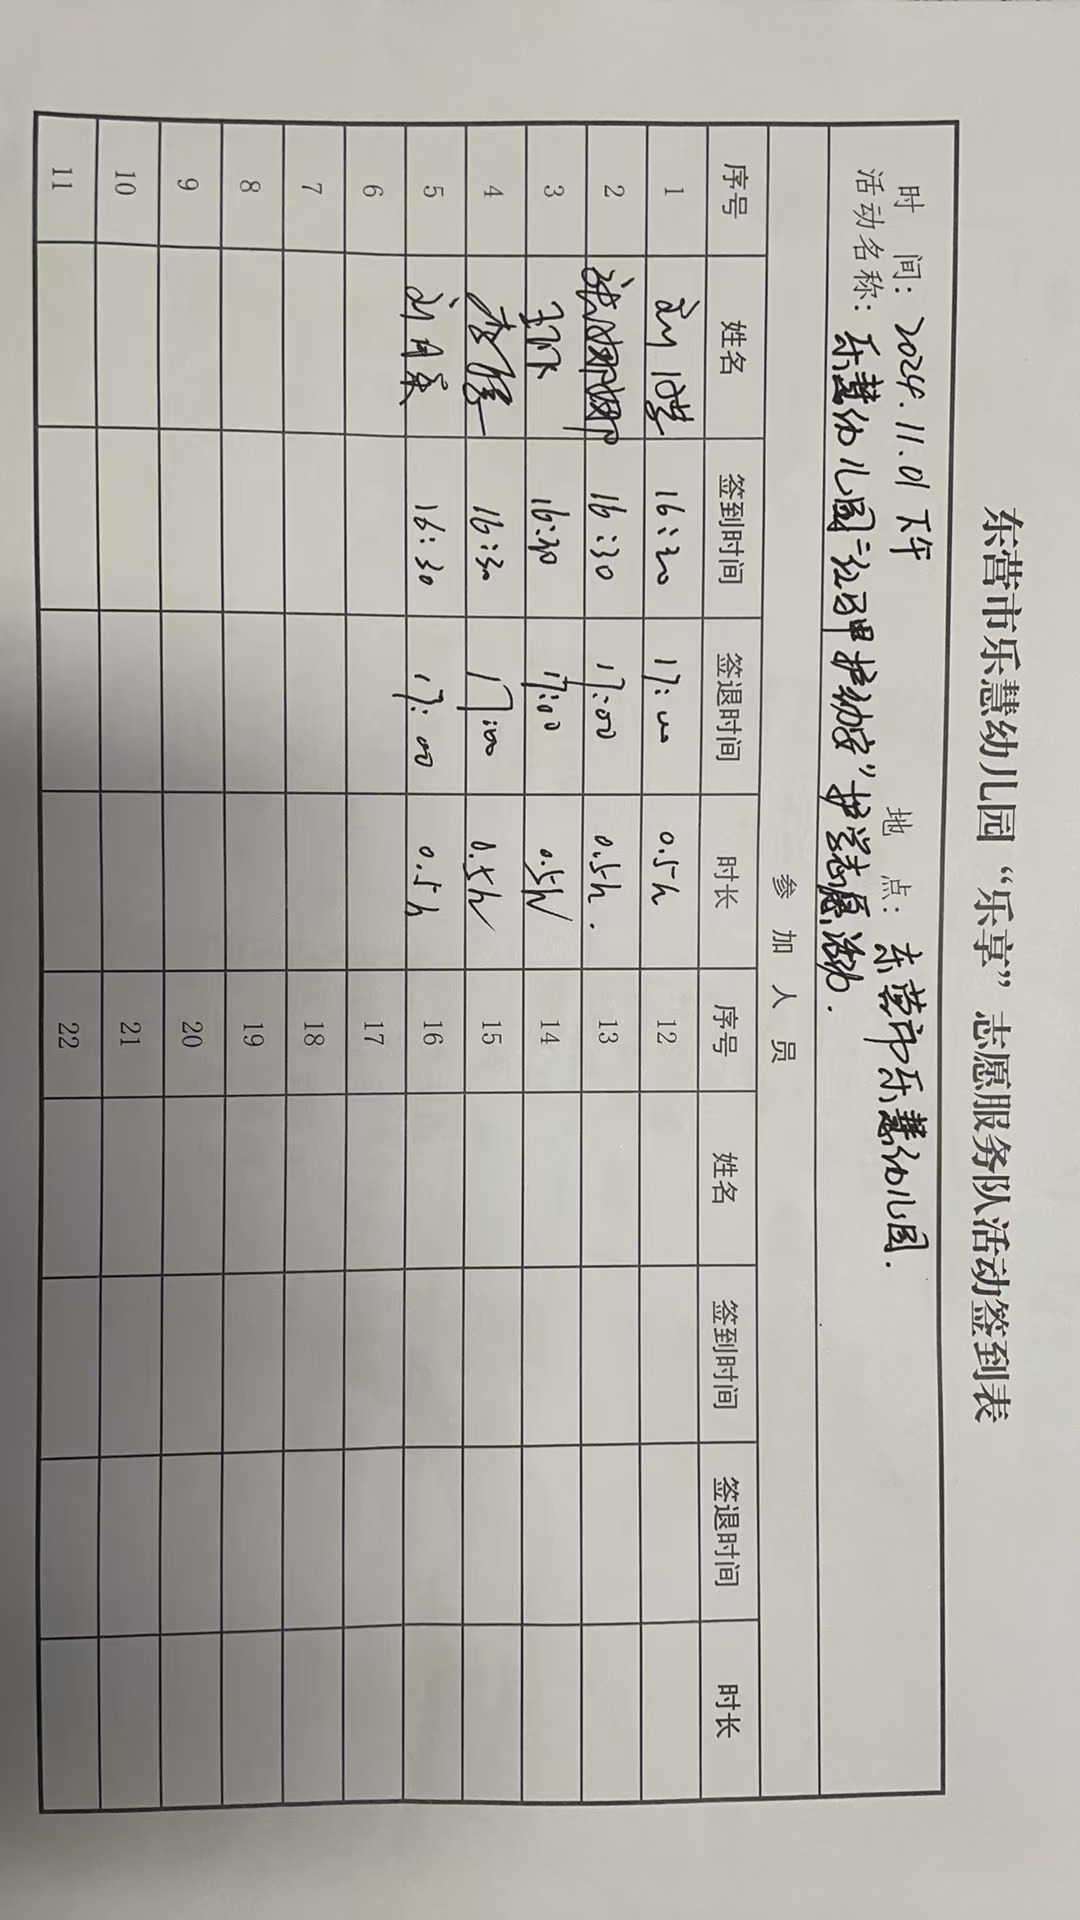 东营市乐慧幼儿园“乐享”志愿服务队活动签到表
时 间：2024.11.01 下午 地 点：东营市乐慧幼儿园.
活动名称：乐慧幼儿园“红马甲护幼安”护学志愿活动.
参 加 人 员
序号 姓名 签到时间 签退时间 时长 序号 姓名 签到时间 签退时间 时长
1 16:30 17:00 0.5h 12
2 16:30 17:00 0.5h. 13
3 16:30 17:00 0.5h 14
4 16:30 17:00 0.5h 15
5 16:30 17:00 0.5h 16
6 17
7 18
8 19
9 20
10 21
11 22